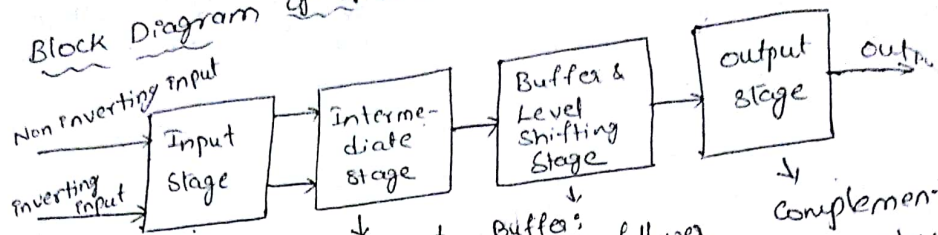 Block Diagram
Non inverting input
inverting
input
Input
Stage
Interme-
diate
stage
Buffer &
Level
Shifting
Stage
output
stage
Buffer:
Complemen-